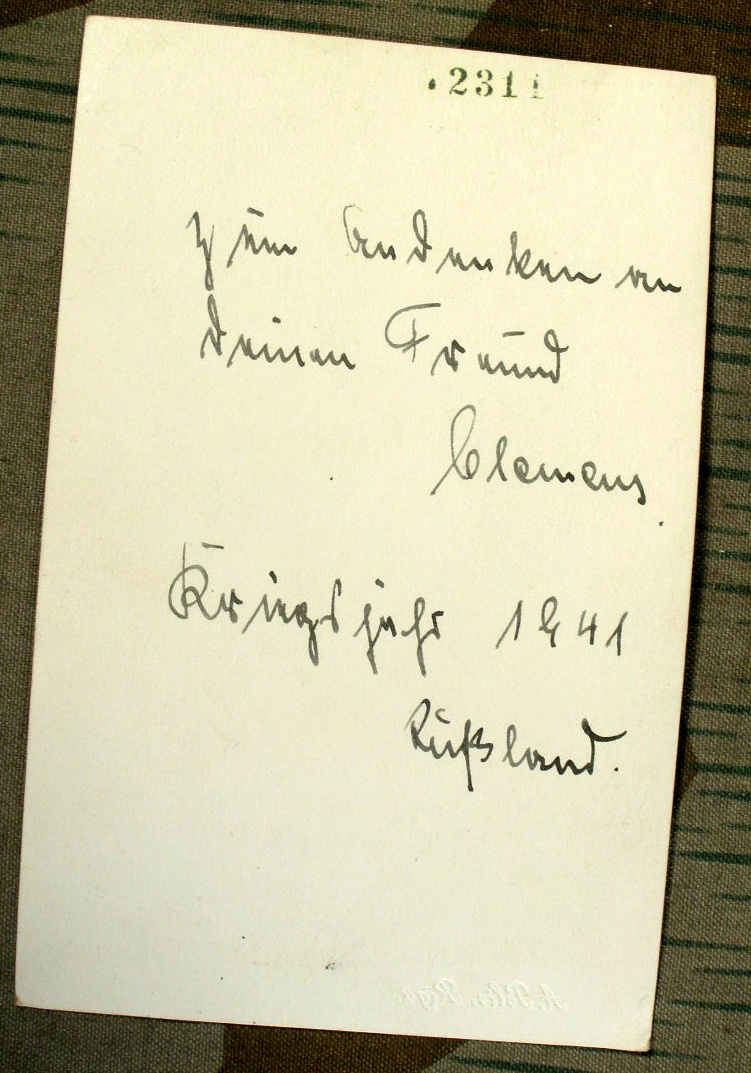 2311
Zum Andenken an
deinen Freund
Clemens.
Kriegsjahr 1941
Rußland.